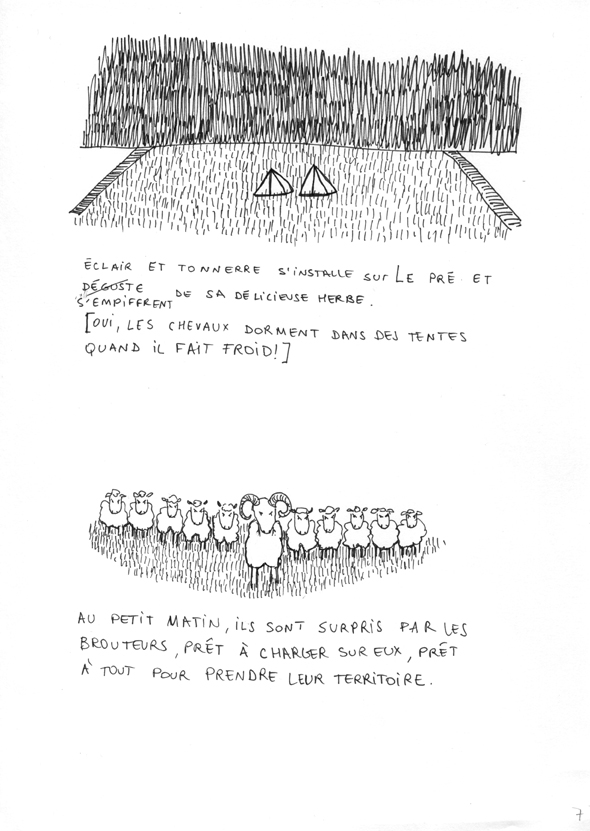 ÉCLAIR ET TONNERRE S'INSTALLE SUR LE PRÉ ET
DÉGUSTE
S'EMPIFFRENT DE SA DÉLICIEUSE HERBE.
[OUI, LES CHEVAUX DORMENT DANS DES TENTES
QUAND IL FAIT FROID!]
AU PETIT MATIN, ILS SONT SURPRIS PAR LES
BROUTEURS, PRÊT À CHARGER SUR EUX, PRÊT
À TOUT POUR PRENDRE LEUR TERRITOIRE.
7